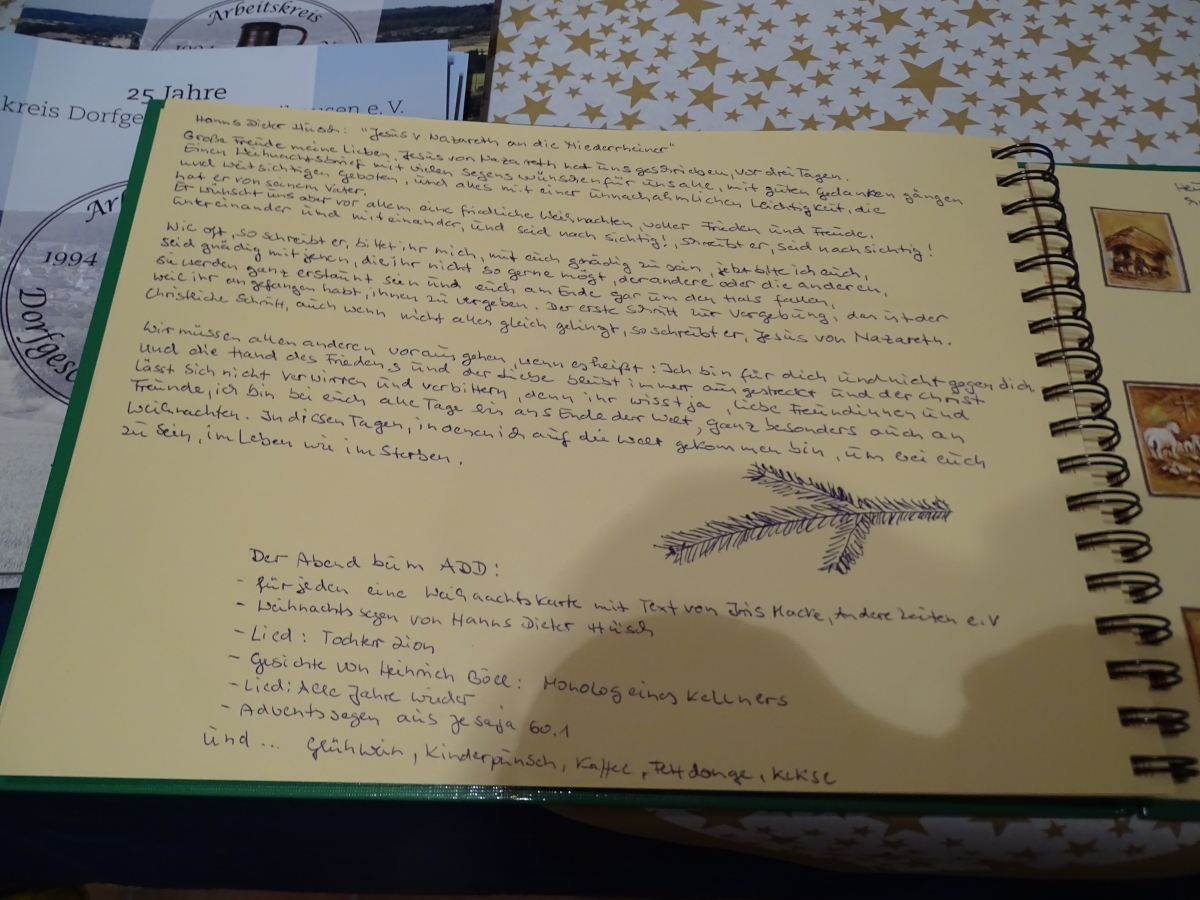 Arbeitskreis
25 Jahre
kreis Dorfge
e. V.
1994
Dorfgesc
Hanns Dieter Hüsch: "Jesus v Nazareth an die Niederrheiner"
Große Freude meine Lieben, Jesus von Nazareth hat uns geschrieben, vor drei Tagen.
Einen Weihnachtsbrief mit vielen Segenswünschen für uns alle, mit guten Gedankengängen
und weitsichtigen geboten, und alles mit einer unnachahmlichen Leichtigkeit, die
hat er von seinem Vater.
Er wünscht uns aber vor allem eine friedliche Weihnachten, voller Frieden und Freude.
untereinander und miteinander, und seid nachsichtig!, schreibt er, seid nachsichtig!
Wie oft, so schreibt er, bittet ihr mich, mit euch gnädig zu sein, jetzt bitte ich euch,
seid gnädig mit jenen, die ihr nicht so gerne mögt, der andere oder die anderen,
sie werden ganz erstaunt sein und euch am Ende gar um den Hals fallen,
weil ihr angefangen habt, ihnen zu vergeben. Der erste Schritt zur Vergebung, das ist der
christliche Schritt, auch wenn nicht alles gleich gelingt, so schreibt er, Jesus von Nazareth.
Wir müssen allen anderen vorausgehen, wenn es heißt: Ich bin für dich und nicht gegen dich
und die Hand des Friedens und der Liebe bleibt immer ausgestreckt und der Christ
lässt sich nicht verwirren und verbittern, denn ihr wisst ja, liebe Freundinnen und
Freunde, ich bin bei euch alle Tage bis ans Ende der Welt, ganz besonders auch an
Weihnachten. In diesen Tagen, in denen ich auf die Welt gekommen bin, um bei euch
zu sein, im Leben wie im Sterben.
Der Abend beim ADD:
- für jeden eine Weihnachtskarte mit Text von Iris Macke, Andere Zeiten e.V
- Weihnachtssegen von Hanns Dieter Hüsch
- Lied: Tochter Zion
- Gesichte von Heinrich Böll: Monolog eines Kellners
- Lied: Alle Jahre wieder
- Adventssegen aus Jesaja 60.1
und... Glühwein, Kinderpunsch, Kaffee, Fettdonge, Kekse